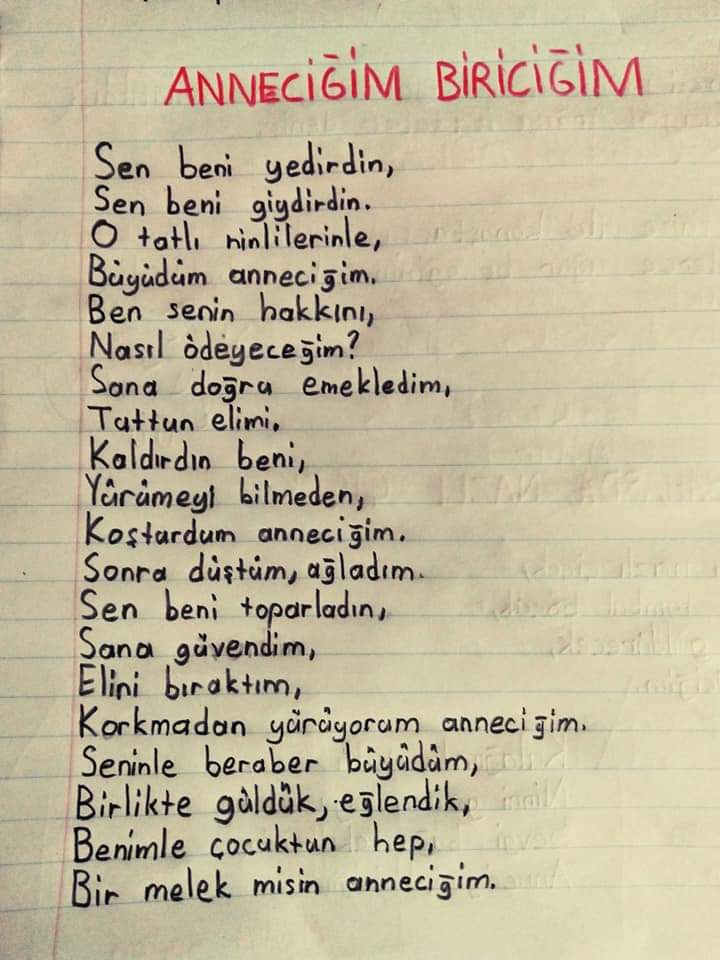 ANNECİĞİM BİRİCİĞİM
Sen beni yedirdin,
Sen beni giydirdin.
O tatlı ninlilerinle,
Büyüdüm anneciğim.
Ben senin hakkını,
Nasıl ödeyeceğim?
Sana doğru emekledim,
Tuttun elimi.
Kaldırdın beni,
Yürümeyi bilmeden,
Koşturdum anneciğim.
Sonra düştüm, ağladım.
Sen beni toparladın,
Sana güvendim,
Elini bıraktım,
Korkmadan yürüyorum anneciğim.
Seninle beraber büyüdüm,
Birlikte güldük, eğlendik,
Benimle çocuktun hep,
Bir melek misin anneciğim.